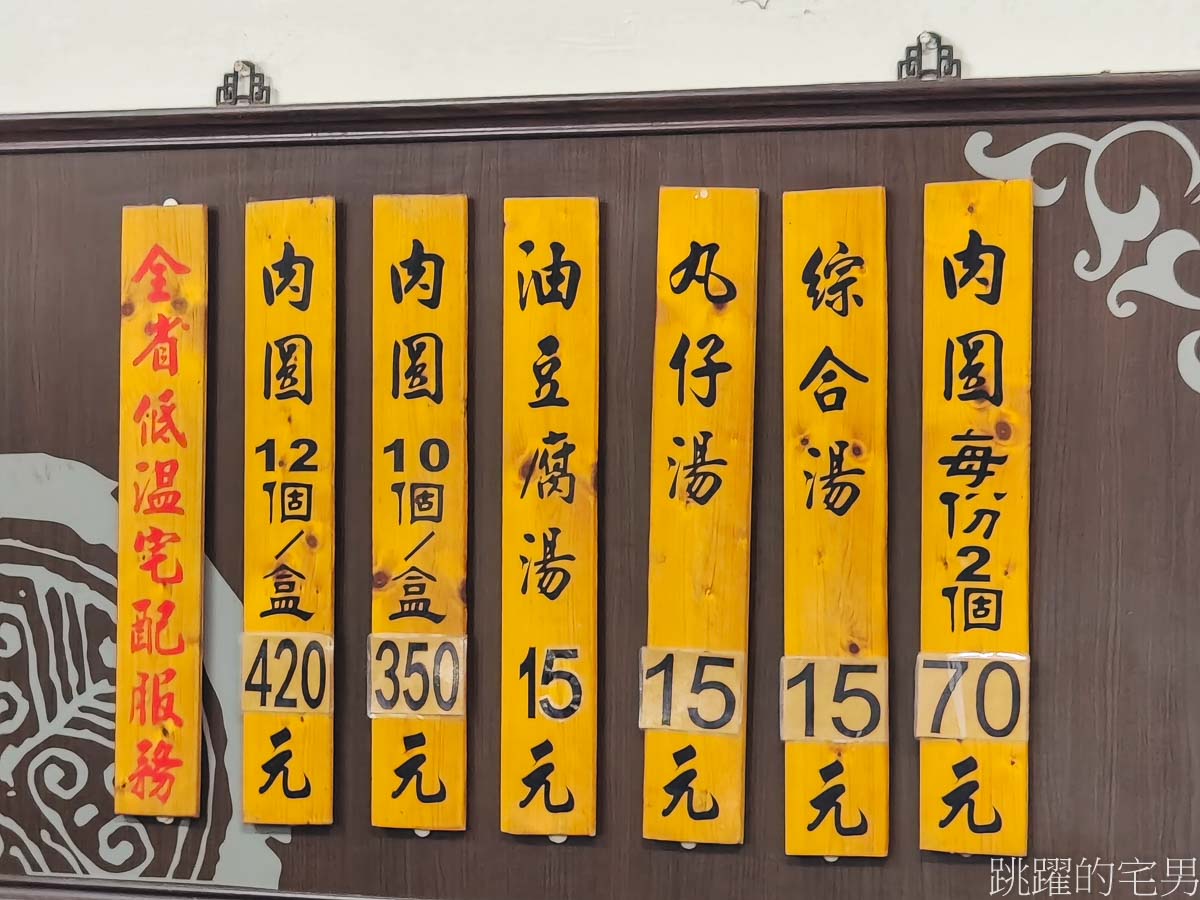 肉圓每份2個70元
綜合湯15元
丸仔湯15元
油豆腐湯15元
肉圓10個/盒350元
肉圓12個/盒420元
全省低溫宅配服務
跳躍的宅男